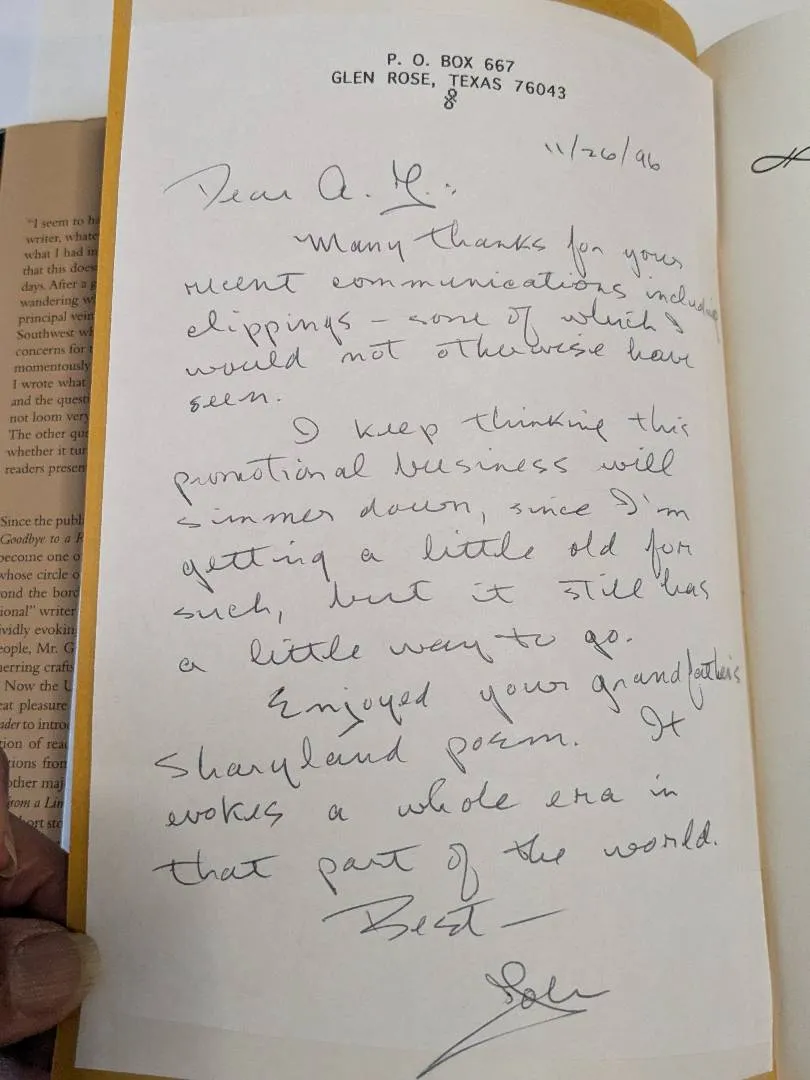 P. O. BOX 667
GLEN ROSE, TEXAS 76043
11/26/96
Dear A. Y.:
Many thanks for your
recent communications including
clippings – some of which I
would not otherwise have
seen.
I keep thinking this
promotional business will
simmer down, since I'm
getting a little old for
such, but it still has
a little way to go.
Enjoyed your grandfather's
Sharyland poem. It
evokes a whole era in
that part of the world.
Best —
John
"I seem to ha
writer, whate
what I had in
that this does
days. After a g
wandering w
principal vein
Southwest wh
concerns for t
momentously
I wrote what
and the questi
not loom very
The other que
whether it tur
readers presen
Since the publ
Goodbye to a R
become one o
whose circle o
ond the bord
ional" writer
ividly evokin
eople, Mr. G
herring crafts
Now the U
eat pleasure
ader to introd
tion of read
tions from
other maj
from a Lim
hort sto